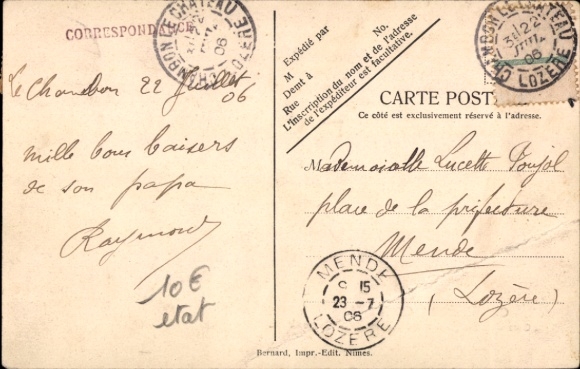 CORRESPONDANCE
CHAMBON LE CHATEAU
LOZERE
Le Chambon 22 Juillet
06
mille bons baisers
de son papa
Raymond
10€
état
Expédié par
No.
M
Demt à
Rue
L'Inscription du nom et de l'adresse
de l'expéditeur est facultative.
CHAMBON LE CHATEAU
22
06
LOZERE
CARTE POST
Ce côté est exclusivement réservé à l'adresse.
Mademoiselle Lucette Poujol
place de la préfecture
Mende
(Lozère)
MENDE
15
23 -7
06
LOZERE
Bernard, Impr.-Edit. Nimes.